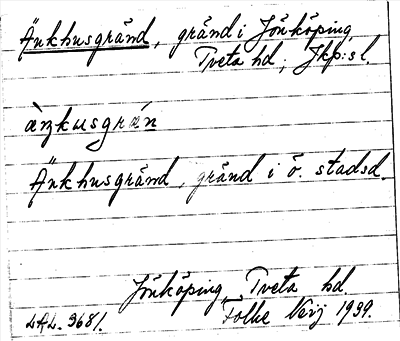 Änkhusgränd, gränd i Jönköping,
Tveta hd, Jkp:s l.
àŋkusgrán
Änkhusgränd, gränd i ö. stadsd.
Jönköping Tveta hd
LAL. 3681. Folke Neij 1939.